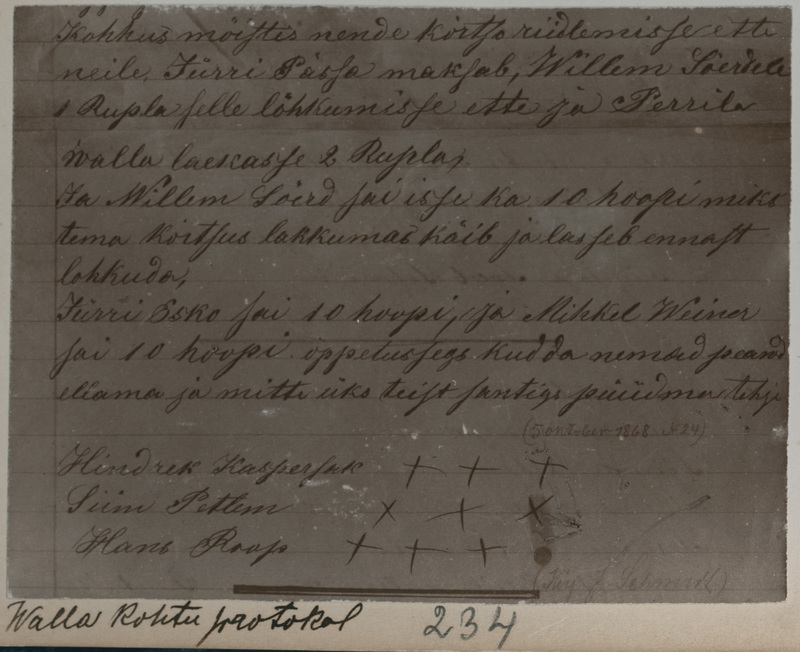 Kohhus mõistis nende kõrtso riidlemisse ette
neile. Jürri Pässa maksab, Willem Sõerdele
1 Rupla selle lõhkumisse ette ja Perrila
walla laekasse 2 Rupla,
Ja Willem Sõerd sai isse ka 10 hoopi miks
tema kõrtsus lakkumas käib ja lasseb ennast
lohkuda,
Jürri Esko sai 10 hoopi, ja Mihkel Weiner
sai 10 hoopi õppetussegs kudda nemad peawad
ellama ja mitte üks teist santigs püüdma tehja
(5 october 1868 N 24)
Hindrek Kaspersak + + +
Siim Petlem × + ×
Hans Roop + + +
Schmidt)
Walla Kohtu protokol 234